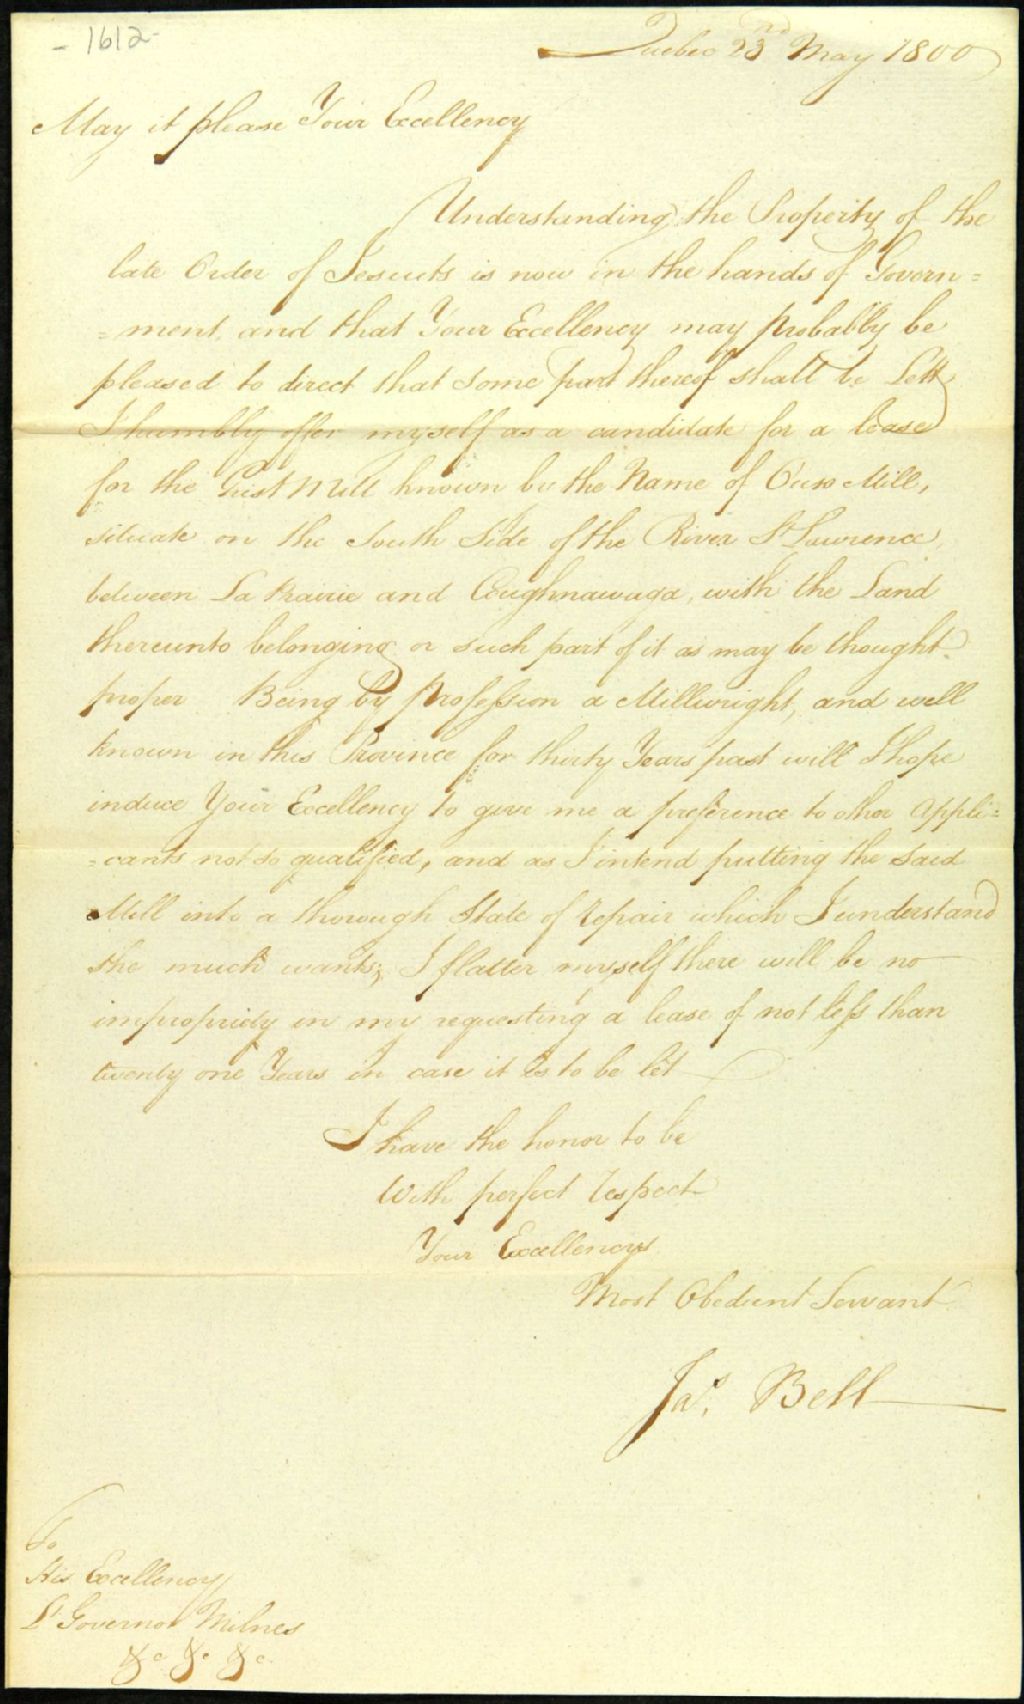 - 1612 -
Quebec 23rd May 1800
May it please Your Excellency
Understanding the Property of the
late Order of Jesuits is now in the hands of Govern=
=ment, and that Your Excellency may probably be
pleased to direct that some part thereof shall be Lett
I humbly offer myself as a candidate for a lease
for the Grist Mill known by the Name of Mill,
situate on the South Side of the River St Lawrence,
between La Prairie and Coughnawaga, with the Land
thereunto belonging or such part of it as may be thought
proper Being by Profession a Millwright, and well
known in this Province for thirty Years past will I hope
induce Your Excellency to give me a preference to other Appli=
=cants not so qualified, and as I intend putting the said
Mill into a thorough State of repair which I understand
she much wants; I flatter myself there will be no
impropriety in my requesting a lease of not less than
twenty one Years in case it is to be let
I have the honor to be
With perfect respect
Your Excellencys
Most Obedient Servant
Jas. Bell
To
His Excellency
Lt Governor Milnes
&c &c &c